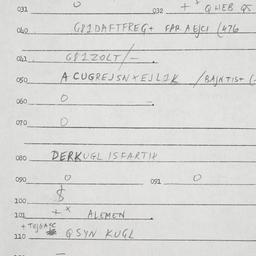 031 0 032 + * QHEB Q5
040 GP1DAFTFREG+ FAR AEJCI (476
041 GP1ZOLT/-
050 ACUGREJSNXEJL1K /BAJNTIST (-
060 0
070 0
080 DERKUGLISFARTIK
090 0 091 0
100 $
101 + x ALEMEN
110 QSYN KUGL